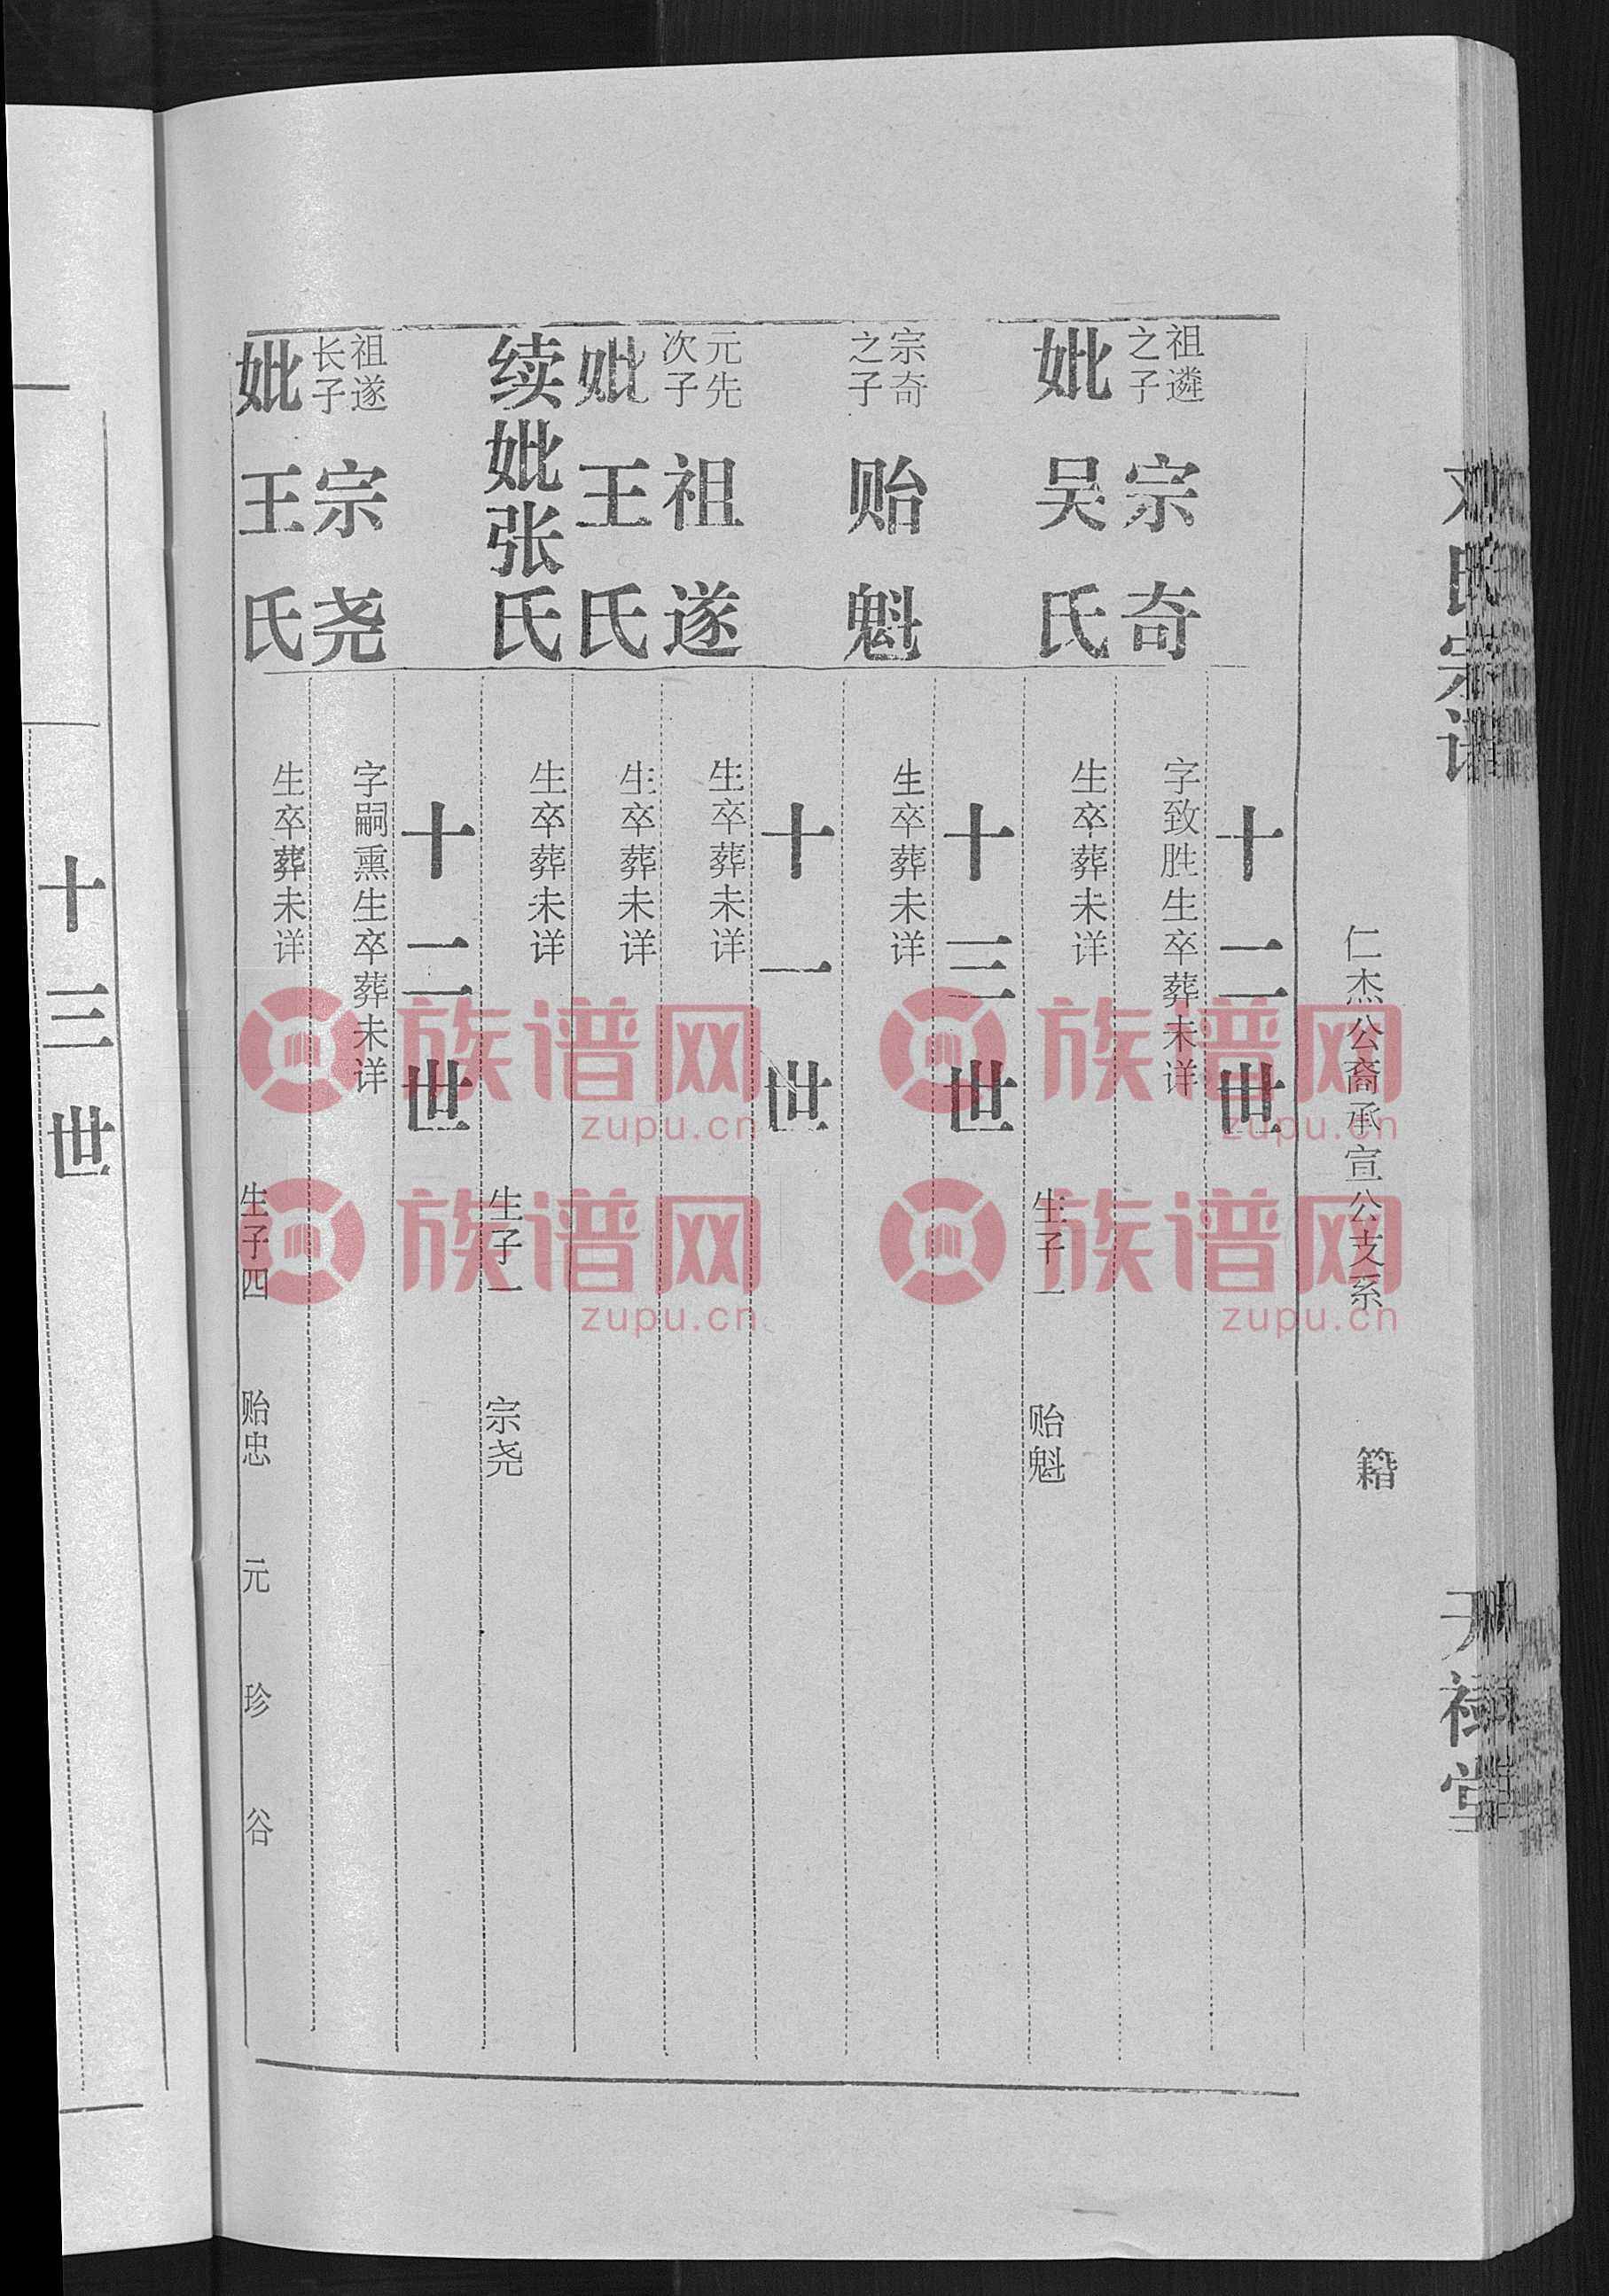 氏宗谱
仁杰公裔承宣公支系
籍
堂
十二世
祖遴之子
宗奇
字致胜生卒葬未详
妣吴氏
生卒葬未详
生子一
贻魁
十三世
宗奇之子
贻魁
生卒葬未详
十一世
元先次子
祖遂
生卒葬未详
妣王氏
生卒葬未详
续妣张氏
生卒葬未详
生子一
宗尧
十二世
祖遂长子
宗尧
字嗣熏生卒葬未详
妣王氏
生卒葬未详
生子四
贻忠
元
珍
谷
十三世
族谱网
zupu.cn
族谱网
zupu.cn
族谱网
zupu.cn
族谱网
zupu.cn